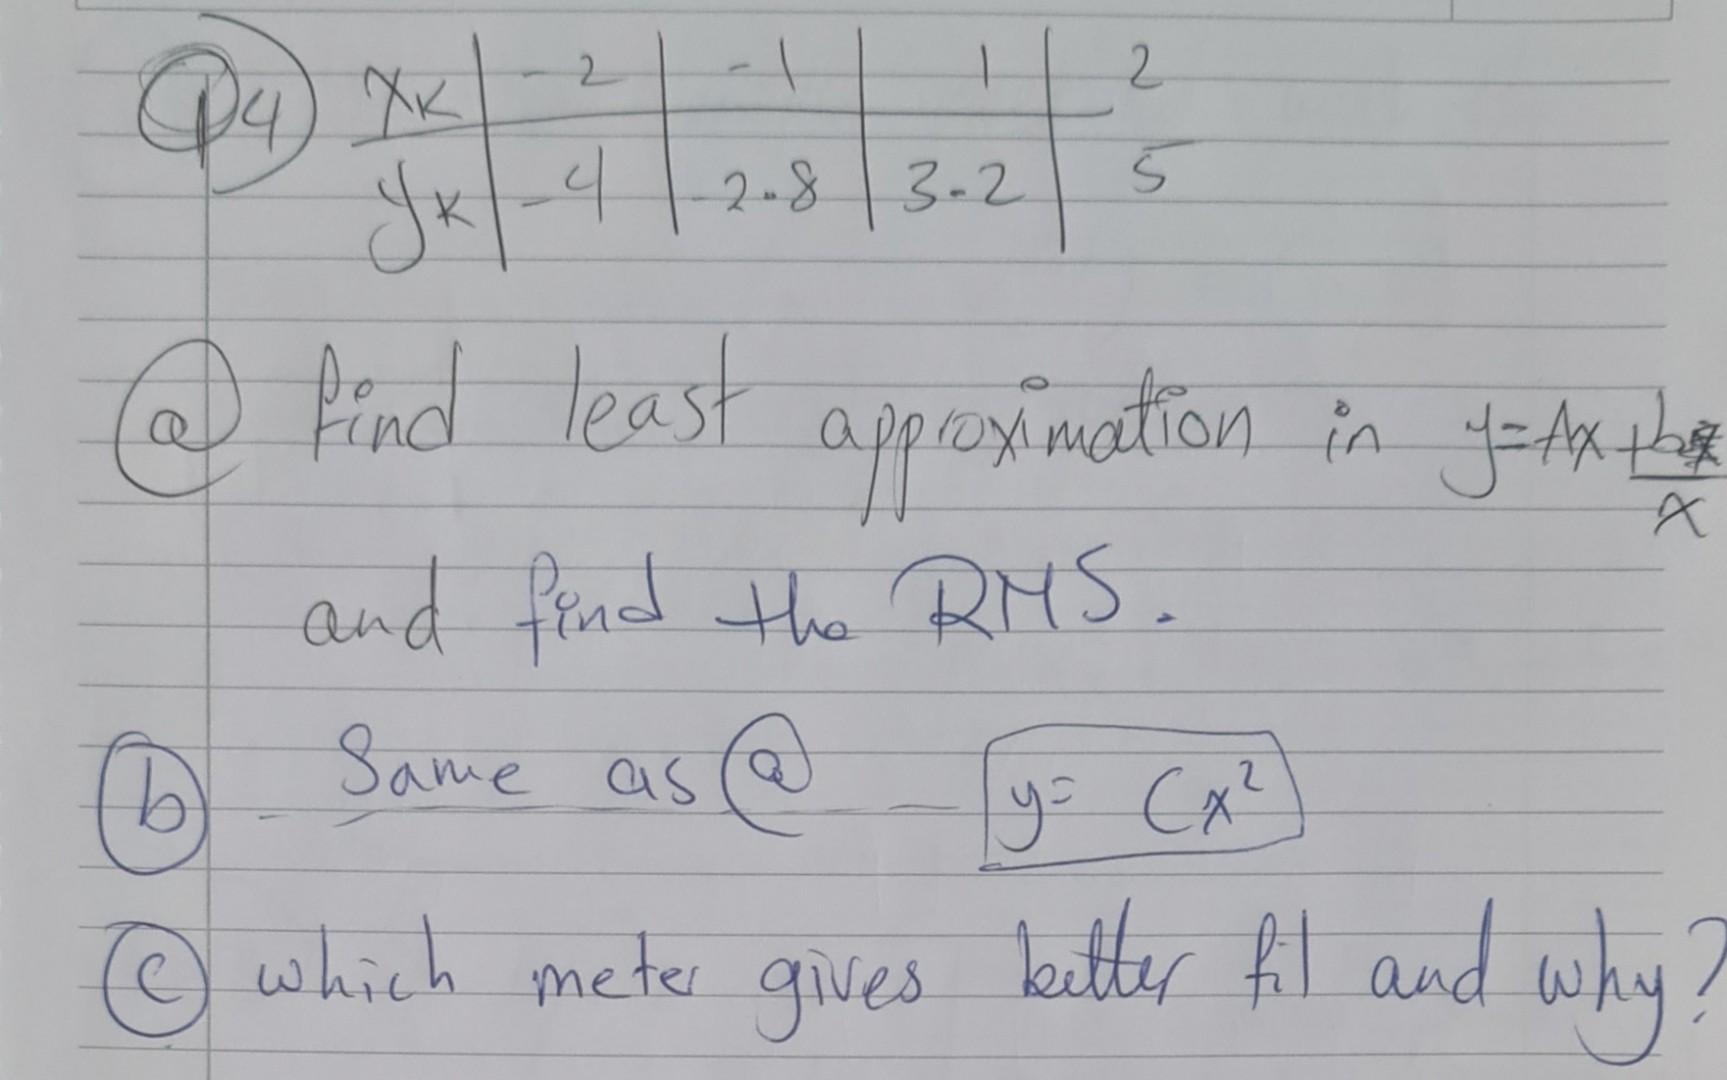 Q4) xK | -2 | -1 | 1 | 2
yK | -4 | -2.8 | 3.2 | 5
(a) find least approximation in y=Ax+b/x
and find the RMS.
(b) Same as (a) — y= Cx²
(c) which meter gives better fit and why?